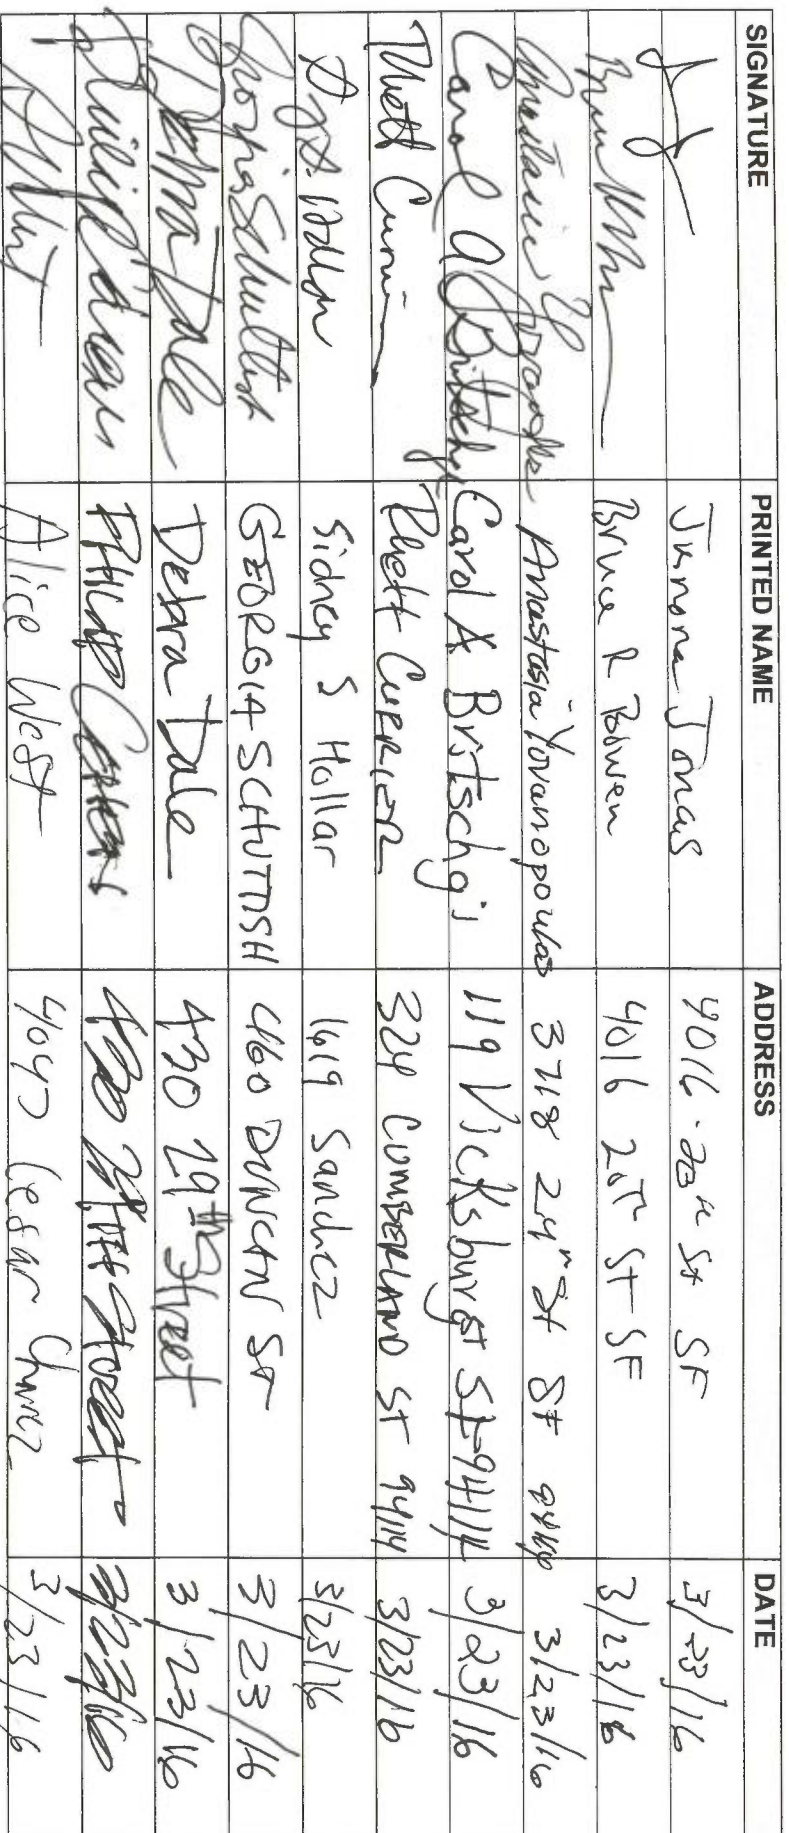 SIGNATURE PRINTED NAME ADDRESS DATE
Junona Jonas 4016 - 20th St SF 3/23/16
Bruce R Bowen 4016 20th St SF 3/23/16
Anastasia Yovanopoulos 3718 24th St SF 3/23/16
Carol A Britschgi Carol A Britschgi 119 Vicksburg St 94114 3/23/16
Rhett Currier Rhett CURRIER 324 CUMBERLAND ST 94114 3/23/16
Sidney S Hollar 1619 Sanchez 3/23/16
Georgia Schuttish GEORGIA SCHUTTISH 460 DUNCAN ST 3/23/16
Debra Dale Debra Dale 430 29th Street 3/23/16
PHILIP 430 29th Street 3/23/16
Alice West Cesar Chavez 3/23/16